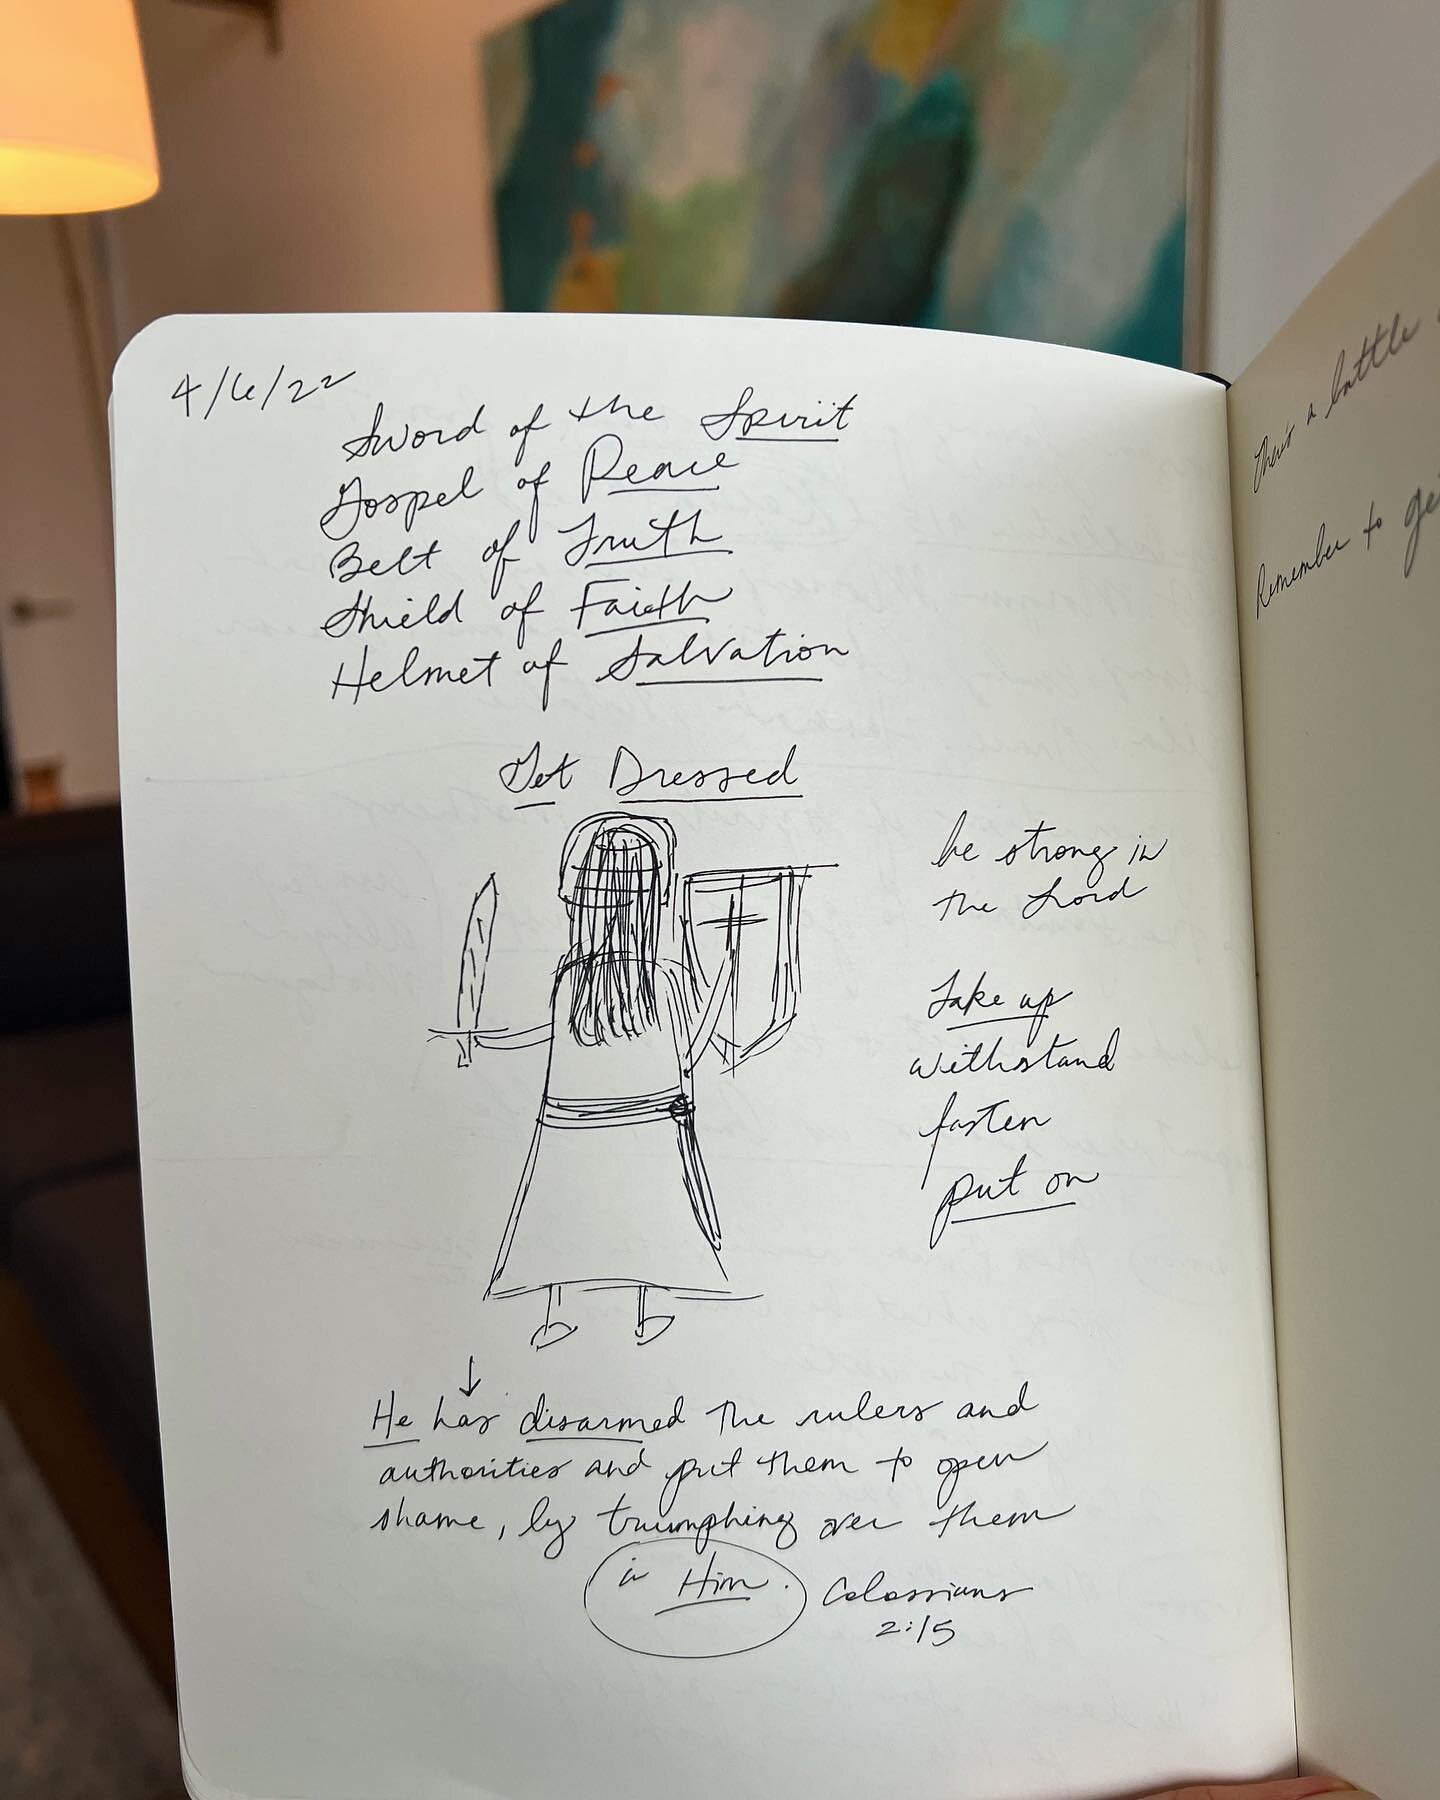 4/6/22
Sword of the Spirit
Gospel of Peace
Belt of Truth
Shield of Faith
Helmet of Salvation
Get Dressed
be strong in
the Lord
Take up
withstand
fasten
put on
He has disarmed the rulers and
authorities and put them to open
shame, by triumphing over them
in Him. Colossians
2:15
There's a battle
Remember to